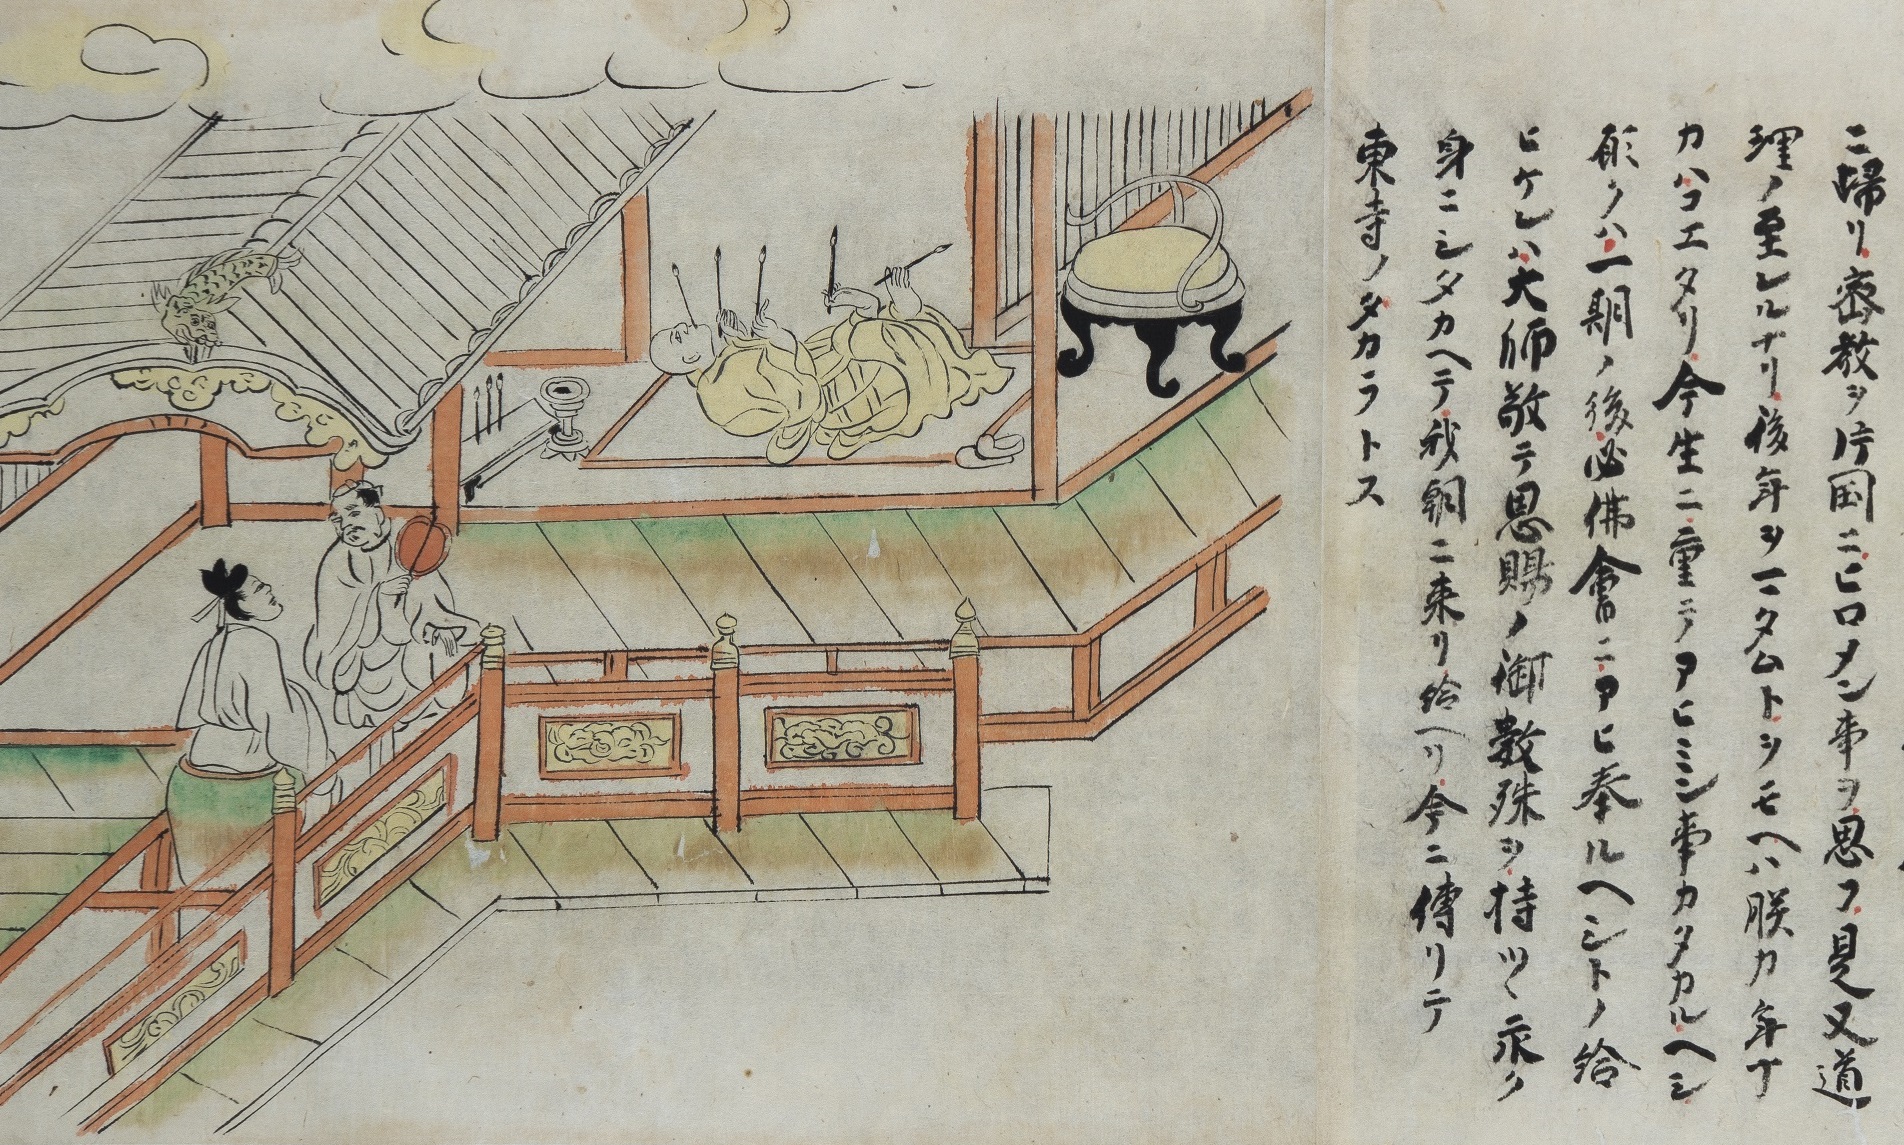 ニ帰リ密教ヲ片国ニヒロメン事ヲ思フ見又道
理ノ至レルナリ後年ヲ一タムトシモヘハ朕カ年ナ
カハコエタリ今生ニ重テアヒミン事カタカルヘシ
願クハ一期ノ後必佛會ニアヒ奉ルヘシトノ給
ヒケレハ大師敬テ恩賜ノ御数珠ヲ持ツヽ永ク
身ニシタカヘテ我朝ニ来リ給ヘリ今ニ傳リテ
東寺ノタカラトス